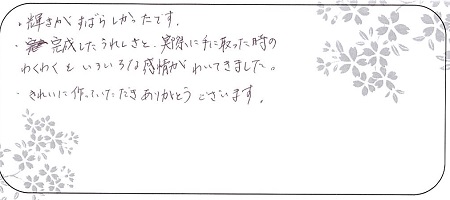 ・輝きがすばらしかったです.
・完成したうれしさと、実際に手に取った時の
わくわくといろいろな感情がわいてきました。
・きれいに作っていただきありがとうございます.